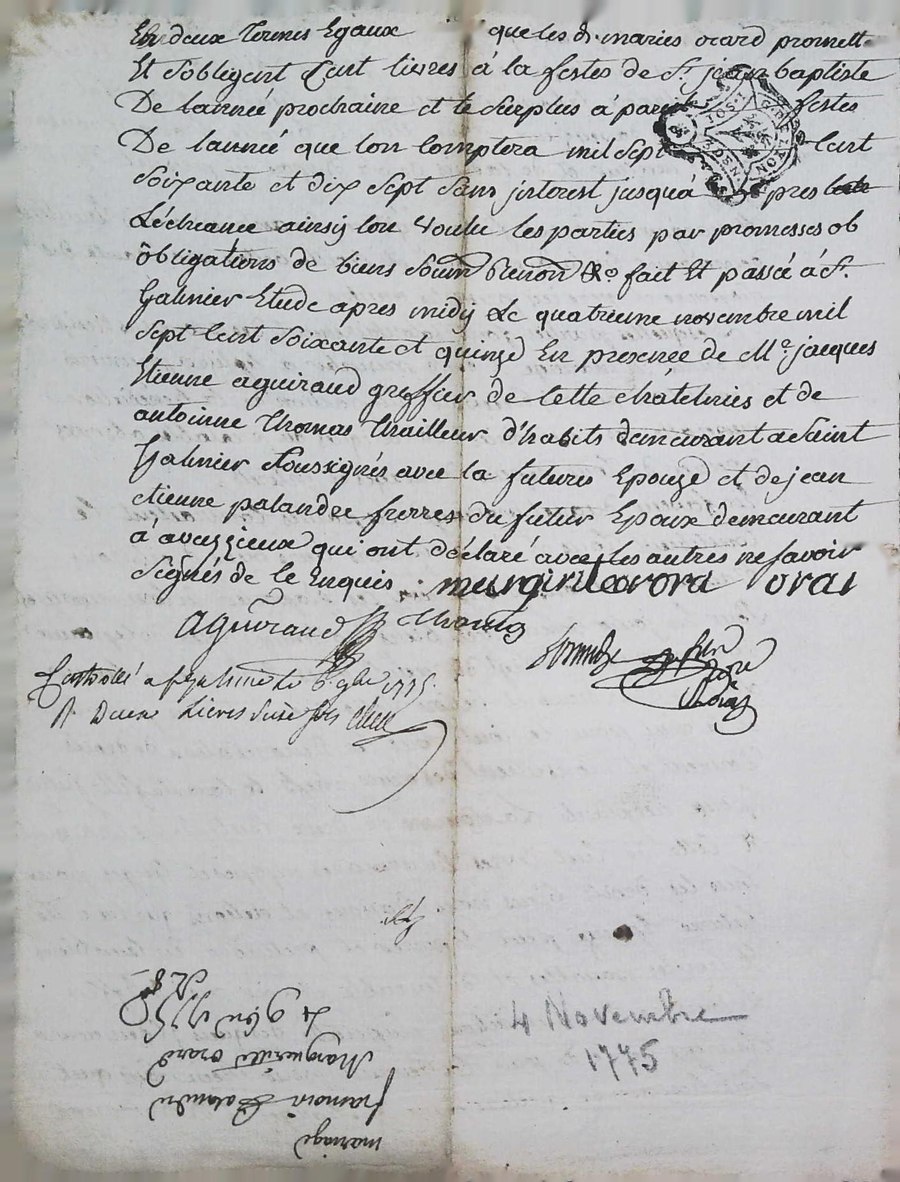 En deux termes Egaux que les d. mariés orard promett.
Et sobligent Cent livres á la festes de St. jean baptiste
De lannée prochaine et le surplus á pa festes
De lanneé que lon Comptera mil sept Cent
soixante et dix sept sans jnterest jusquá pres
Léchéance ainsÿ lon voulu les parties par promesses ob
obligations de biens soum Renon &c. fait Et passé á St.
Galmier Etude apres midÿ Le quatrieme novembre mil
sept Cent soixante et quinze En presence de Me. jacques
Etienne aguiraud greffier de Cette châtelnies et de
antoinne thomas thailleur d'habits demeurant a saint
Galmier soussignés avec la futures Epouze et de jean
etienne palandre frerres du futur Epoux demeurant
á aveizieux qui ont déclaré avec les autres ne savoir
signés de ce Enquis. margirite orora orar
aguiraud thomas
Contrôllé a st galmier le 6. 9bre 1775.
R Deux Livres seize sols
TOS. GDE LYON
3 DEN.
4 Novembre
1775
mariage
francoi Palandre
Marguerite orard
4e 9bre 1775